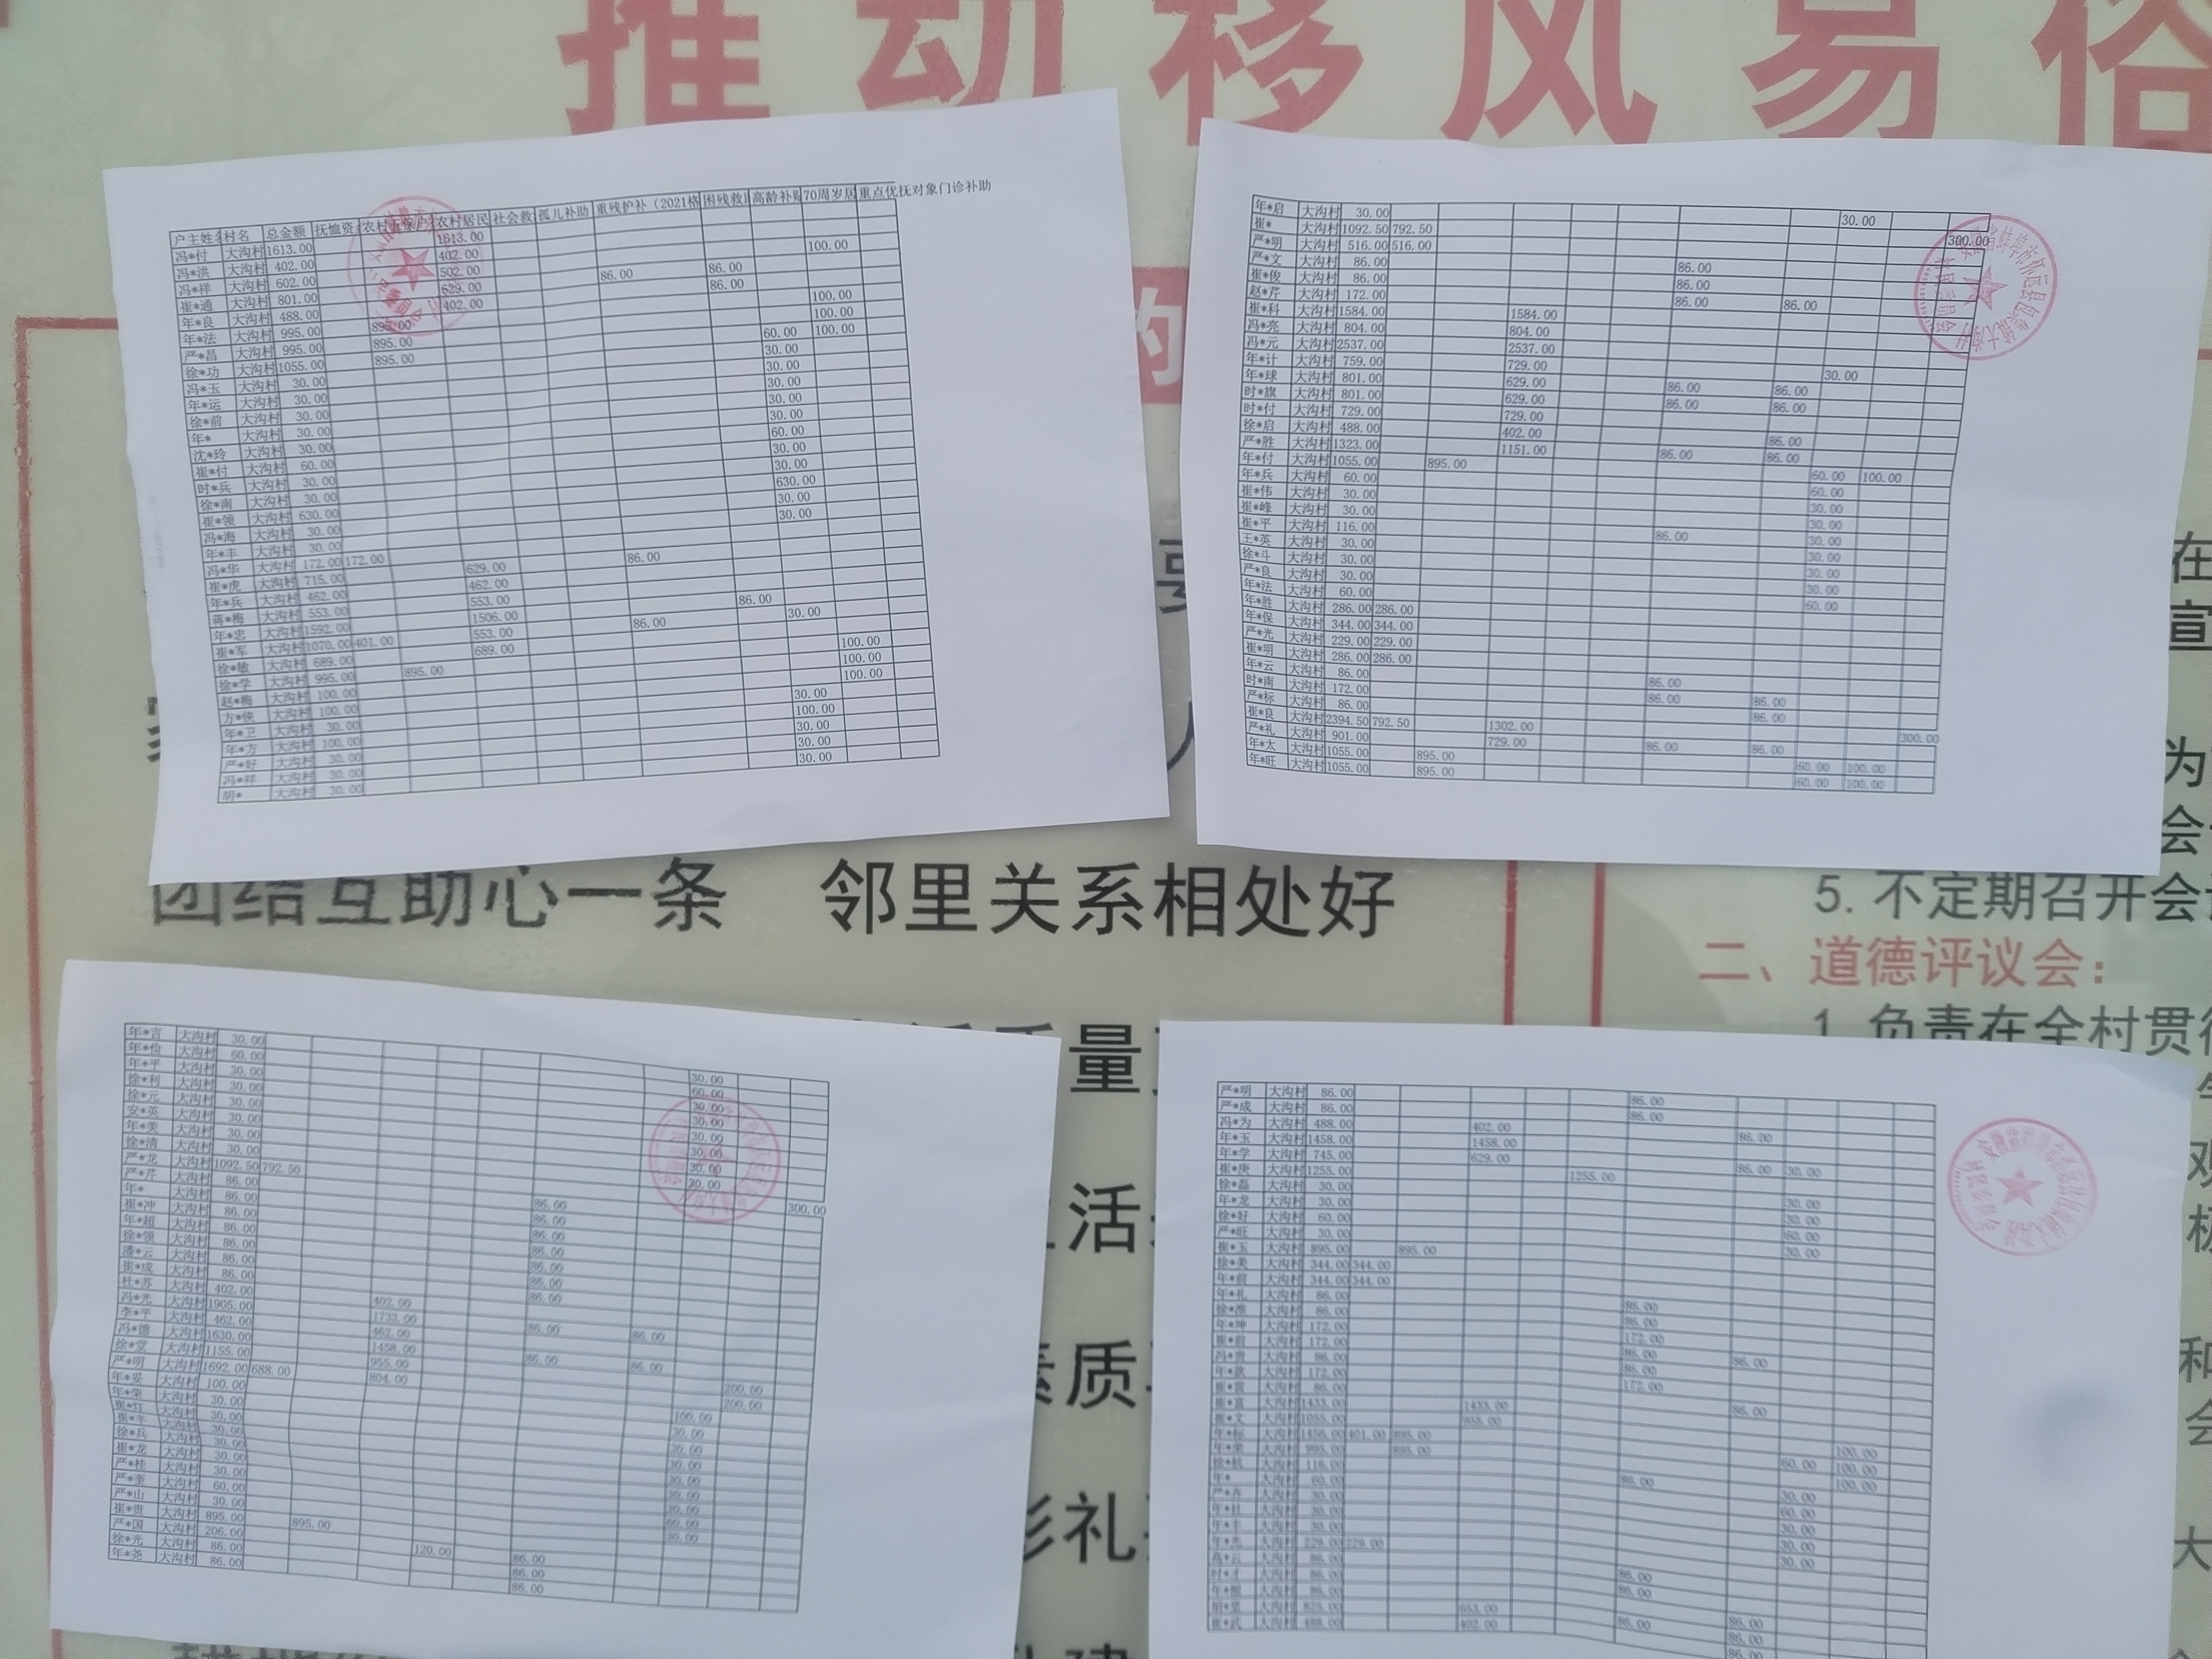 推动移风易俗
户主姓名 村名 总金额 抚恤资 农村五保户 农村居民 社会救 孤儿补助 重残护补（2021格 困残救 高龄补贴 70周岁居 重点优抚对象门诊补助
冯*付 大沟村 1613.00 1613.00
冯*洪 大沟村 402.00 402.00
冯*祥 大沟村 602.00 502.00 100.00
崔*通 大沟村 801.00 629.00 86.00 86.00
年*良 大沟村 488.00 402.00 86.00
年*法 大沟村 995.00 895.00 100.00
严*昌 大沟村 995.00 895.00 100.00
徐*功 大沟村 1055.00 895.00 60.00 100.00
冯*玉 大沟村 30.00 30.00
年*运 大沟村 30.00 30.00
徐*前 大沟村 30.00 30.00
年* 大沟村 30.00 30.00
沈*玲 大沟村 30.00 30.00
崔*付 大沟村 60.00 60.00
时*兵 大沟村 30.00 30.00
徐*南 大沟村 30.00 30.00
崔*领 大沟村 630.00 630.00
冯*海 大沟村 30.00 30.00
年*丰 大沟村 30.00 30.00
冯*华 大沟村 172.00 172.00
崔*虎 大沟村 715.00 629.00 86.00
年*兵 大沟村 462.00 462.00
蒋*梅 大沟村 553.00 553.00
年*忠 大沟村 1592.00 1506.00 86.00
崔*军 大沟村 1070.00 401.00 553.00 86.00 30.00
徐*敏 大沟村 689.00 689.00
徐*学 大沟村 995.00 895.00 100.00
赵*梅 大沟村 100.00 100.00
方*侠 大沟村 100.00 100.00
年*卫 大沟村 30.00 30.00
年*方 大沟村 100.00 100.00
严*好 大沟村 30.00 30.00
冯*祥 大沟村 30.00 30.00
胡* 大沟村 30.00 30.00
年*启 大沟村 30.00 30.00
崔* 大沟村 1092.50 792.50 300.00
严*明 大沟村 516.00 516.00
严*文 大沟村 86.00 86.00
崔*俊 大沟村 86.00 86.00
赵*芹 大沟村 172.00 86.00 86.00
崔*科 大沟村 1584.00 1584.00
冯*亮 大沟村 804.00 804.00
冯*元 大沟村 2537.00 2537.00
年*计 大沟村 759.00 729.00 30.00
年*球 大沟村 801.00 629.00 86.00 86.00
时*旗 大沟村 801.00 629.00 86.00 86.00
时*付 大沟村 729.00 729.00
徐*启 大沟村 488.00 402.00 86.00
严*胜 大沟村 1323.00 1151.00 86.00 86.00
年*付 大沟村 1055.00 895.00 60.00 100.00
年*兵 大沟村 60.00 60.00
崔*伟 大沟村 30.00 30.00
崔*峰 大沟村 30.00 30.00
崔*平 大沟村 116.00 86.00 30.00
王*英 大沟村 30.00 30.00
徐*斗 大沟村 30.00 30.00
严*良 大沟村 30.00 30.00
年*法 大沟村 60.00 60.00
年*胜 大沟村 286.00 286.00
年*保 大沟村 344.00 344.00
严*光 大沟村 229.00 229.00
崔*明 大沟村 286.00 286.00
年*云 大沟村 86.00 86.00
时*南 大沟村 172.00 86.00 86.00
严*标 大沟村 86.00 86.00
崔*良 大沟村 2394.50 792.50 1302.00 300.00
严*礼 大沟村 901.00 729.00 86.00 86.00
年*太 大沟村 1055.00 895.00 60.00 100.00
年*旺 大沟村 1055.00 895.00 60.00 100.00
团结互助心一条 邻里关系相处好
5.不定期召开会
二、道德评议会：
1.负责在全村贯彻
年*言 大沟村 30.00 30.00
年*俭 大沟村 60.00 60.00
年*平 大沟村 30.00 30.00
徐*利 大沟村 30.00 30.00
徐*元 大沟村 30.00 30.00
安*英 大沟村 30.00 30.00
年*美 大沟村 30.00 30.00
徐*清 大沟村 30.00 30.00
严*龙 大沟村 1092.50 792.50 300.00
严*芹 大沟村 86.00 86.00
年* 大沟村 86.00 86.00
崔*冲 大沟村 86.00 86.00
年*超 大沟村 86.00 86.00
徐*领 大沟村 86.00 86.00
潘*云 大沟村 86.00 86.00
崔*成 大沟村 86.00 86.00
杜*苏 大沟村 402.00 402.00
冯*光 大沟村 1905.00 1733.00 86.00 86.00
李*平 大沟村 462.00 462.00
冯*德 大沟村 1630.00 1458.00 86.00 86.00
徐*堂 大沟村 1155.00 955.00 200.00
严*明 大沟村 1692.00 688.00 804.00 200.00
年*妥 大沟村 100.00 100.00
年*荣 大沟村 30.00 30.00
崔*灯 大沟村 30.00 30.00
崔*丰 大沟村 30.00 30.00
徐*兵 大沟村 30.00 30.00
崔*龙 大沟村 30.00 30.00
严*桂 大沟村 30.00 30.00
严*奎 大沟村 60.00 60.00
严*山 大沟村 30.00 30.00
崔*贵 大沟村 895.00 895.00
严*国 大沟村 206.00 120.00 86.00
徐*光 大沟村 86.00 86.00
年*尧 大沟村 86.00 86.00
严*明 大沟村 86.00 86.00
严*成 大沟村 86.00 86.00
冯*为 大沟村 488.00 402.00 86.00
年*玉 大沟村 1458.00 1458.00
年*学 大沟村 745.00 629.00 86.00 30.00
崔*庚 大沟村 1255.00 1255.00
徐*磊 大沟村 30.00 30.00
年*龙 大沟村 30.00 30.00
徐*好 大沟村 60.00 60.00
严*旺 大沟村 30.00 30.00
崔*玉 大沟村 895.00 895.00
徐*美 大沟村 344.00 344.00
年*前 大沟村 344.00 344.00
年*礼 大沟村 86.00 86.00
徐*淮 大沟村 86.00 86.00
年*坤 大沟村 172.00 172.00
崔*前 大沟村 172.00 86.00 86.00
大沟村 86.00 86.00
大沟村 172.00 172.00
大沟村 86.00 86.00
大沟村 1433.00 1433.00
崔*文 大沟村 1055.00 955.00 100.00
年*标 大沟村 1456.00 401.00 895.00 60.00 100.00
大沟村 995.00 895.00 100.00
大沟村 116.00 86.00 30.00
年* 大沟村 60.00 60.00
大沟村 30.00 30.00
大沟村 30.00 30.00
大沟村 30.00 30.00
年*光 大沟村 229.00 229.00
高*云 大沟村 86.00 86.00
时*才 大沟村 86.00 86.00
大沟村 86.00
大沟村 825.00 653.00 86.00 86.00
崔*武 大沟村 488.00 402.00 86.00